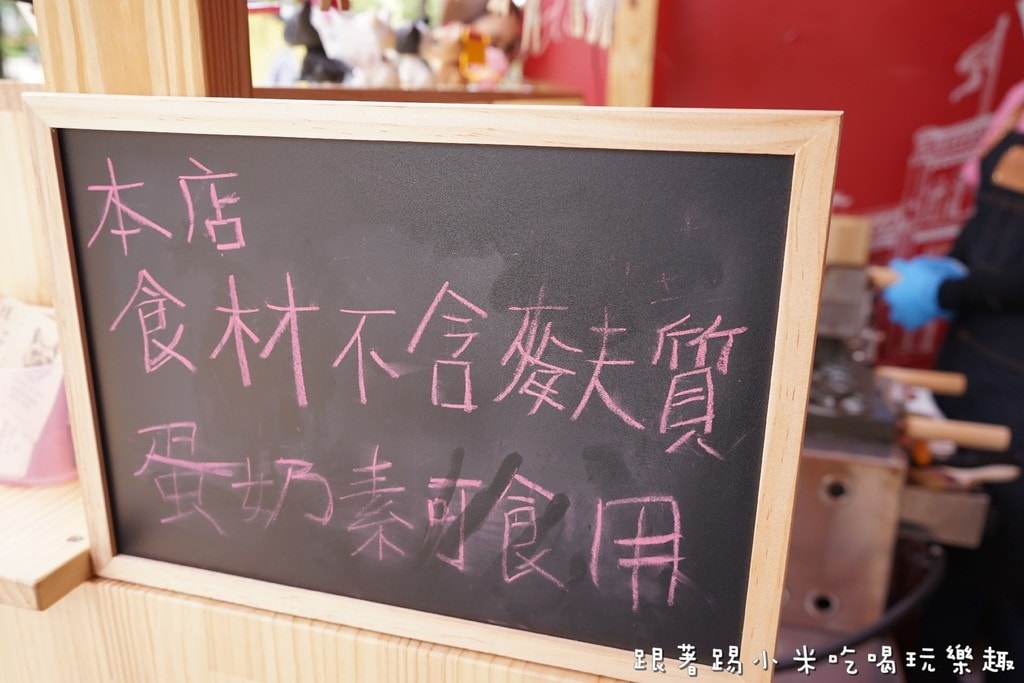 本店
食材不含麩質
蛋奶素可食用
跟著踢小米吃喝玩樂趣